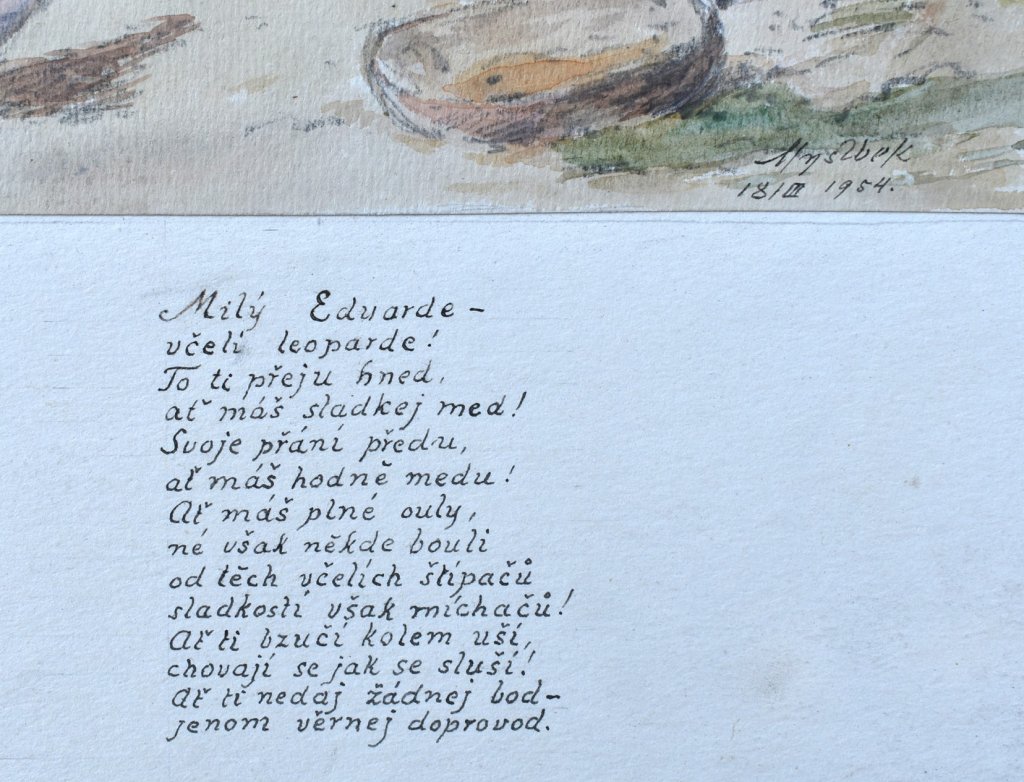 Myslbek
18/III 1954.
Milý Eduarde –
včelí leoparde!
To ti přeju hned,
ať máš sladkej med!
Svoje přání předu,
ať máš hodně medu!
Ať máš plné ouly,
né však někde bouli
od těch včelích štípačů
sladkostí však míchačů!
Ať ti bzučí kolem uší,
chovají se jak se sluší!
Ať ti nedaj žádnej bod–
jenom věrnej doprovod.